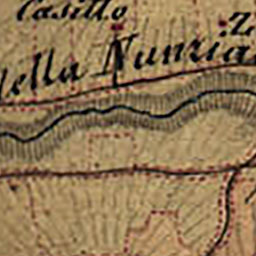 Casitto
Z
della Nunzia